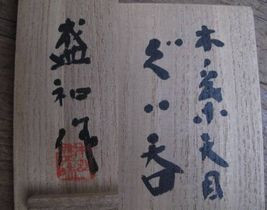 木葉天目
ぐい呑
盛和作